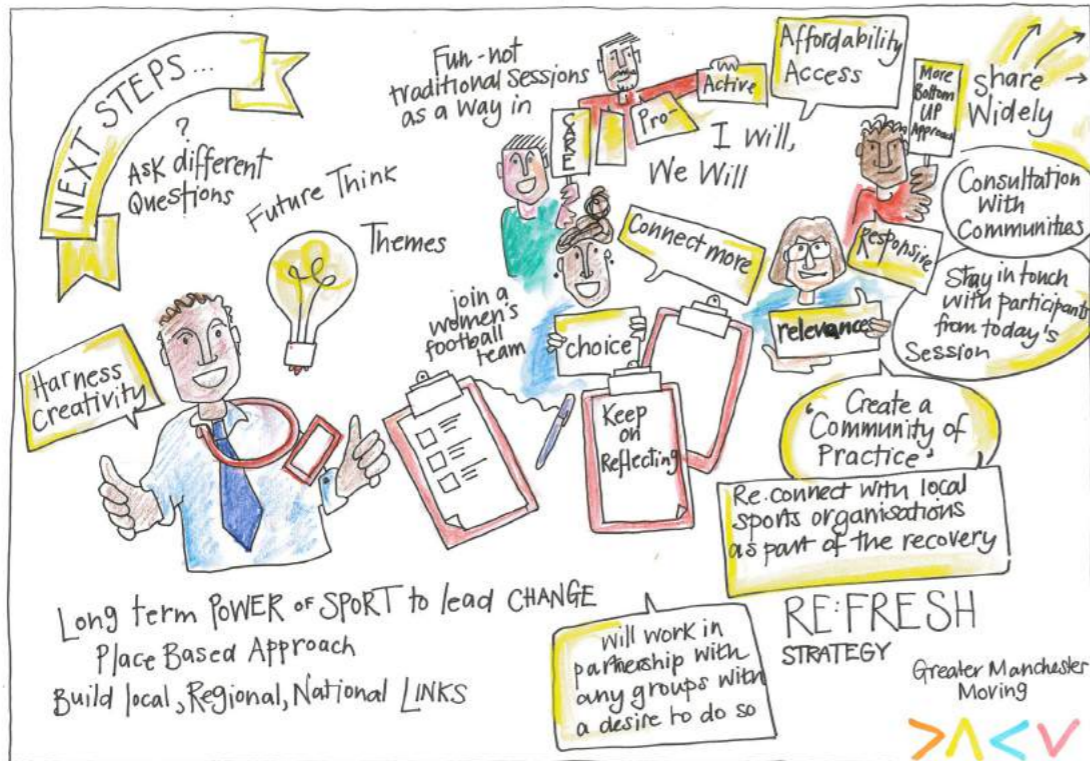 NEXT STEPS...
?
Ask different
Questions
Future Think
Themes
Harness
Creativity
Fun-not
traditional sessions
as a way in
CARE
Pro-
Active
I Will,
We Will
Affordability
Access
More
Bottom
UP
Approach
Share
Widely
Consultation
With
Communities
Responsive
Stay in touch
with participants
from today's
Session
Connect more
relevance
join a
women's
football
team
choice
Keep
on
Reflecting
Create a
'Community of
Practice'
Re.connect with local
sports organisations
as part of the recovery
Long term POWER OF SPORT to lead CHANGE
Place Based Approach
Build local, Regional, National LINKS
Will work in
partnership with
any groups with
a desire to do so
RE:FRESH
STRATEGY
Greater Manchester
Moving